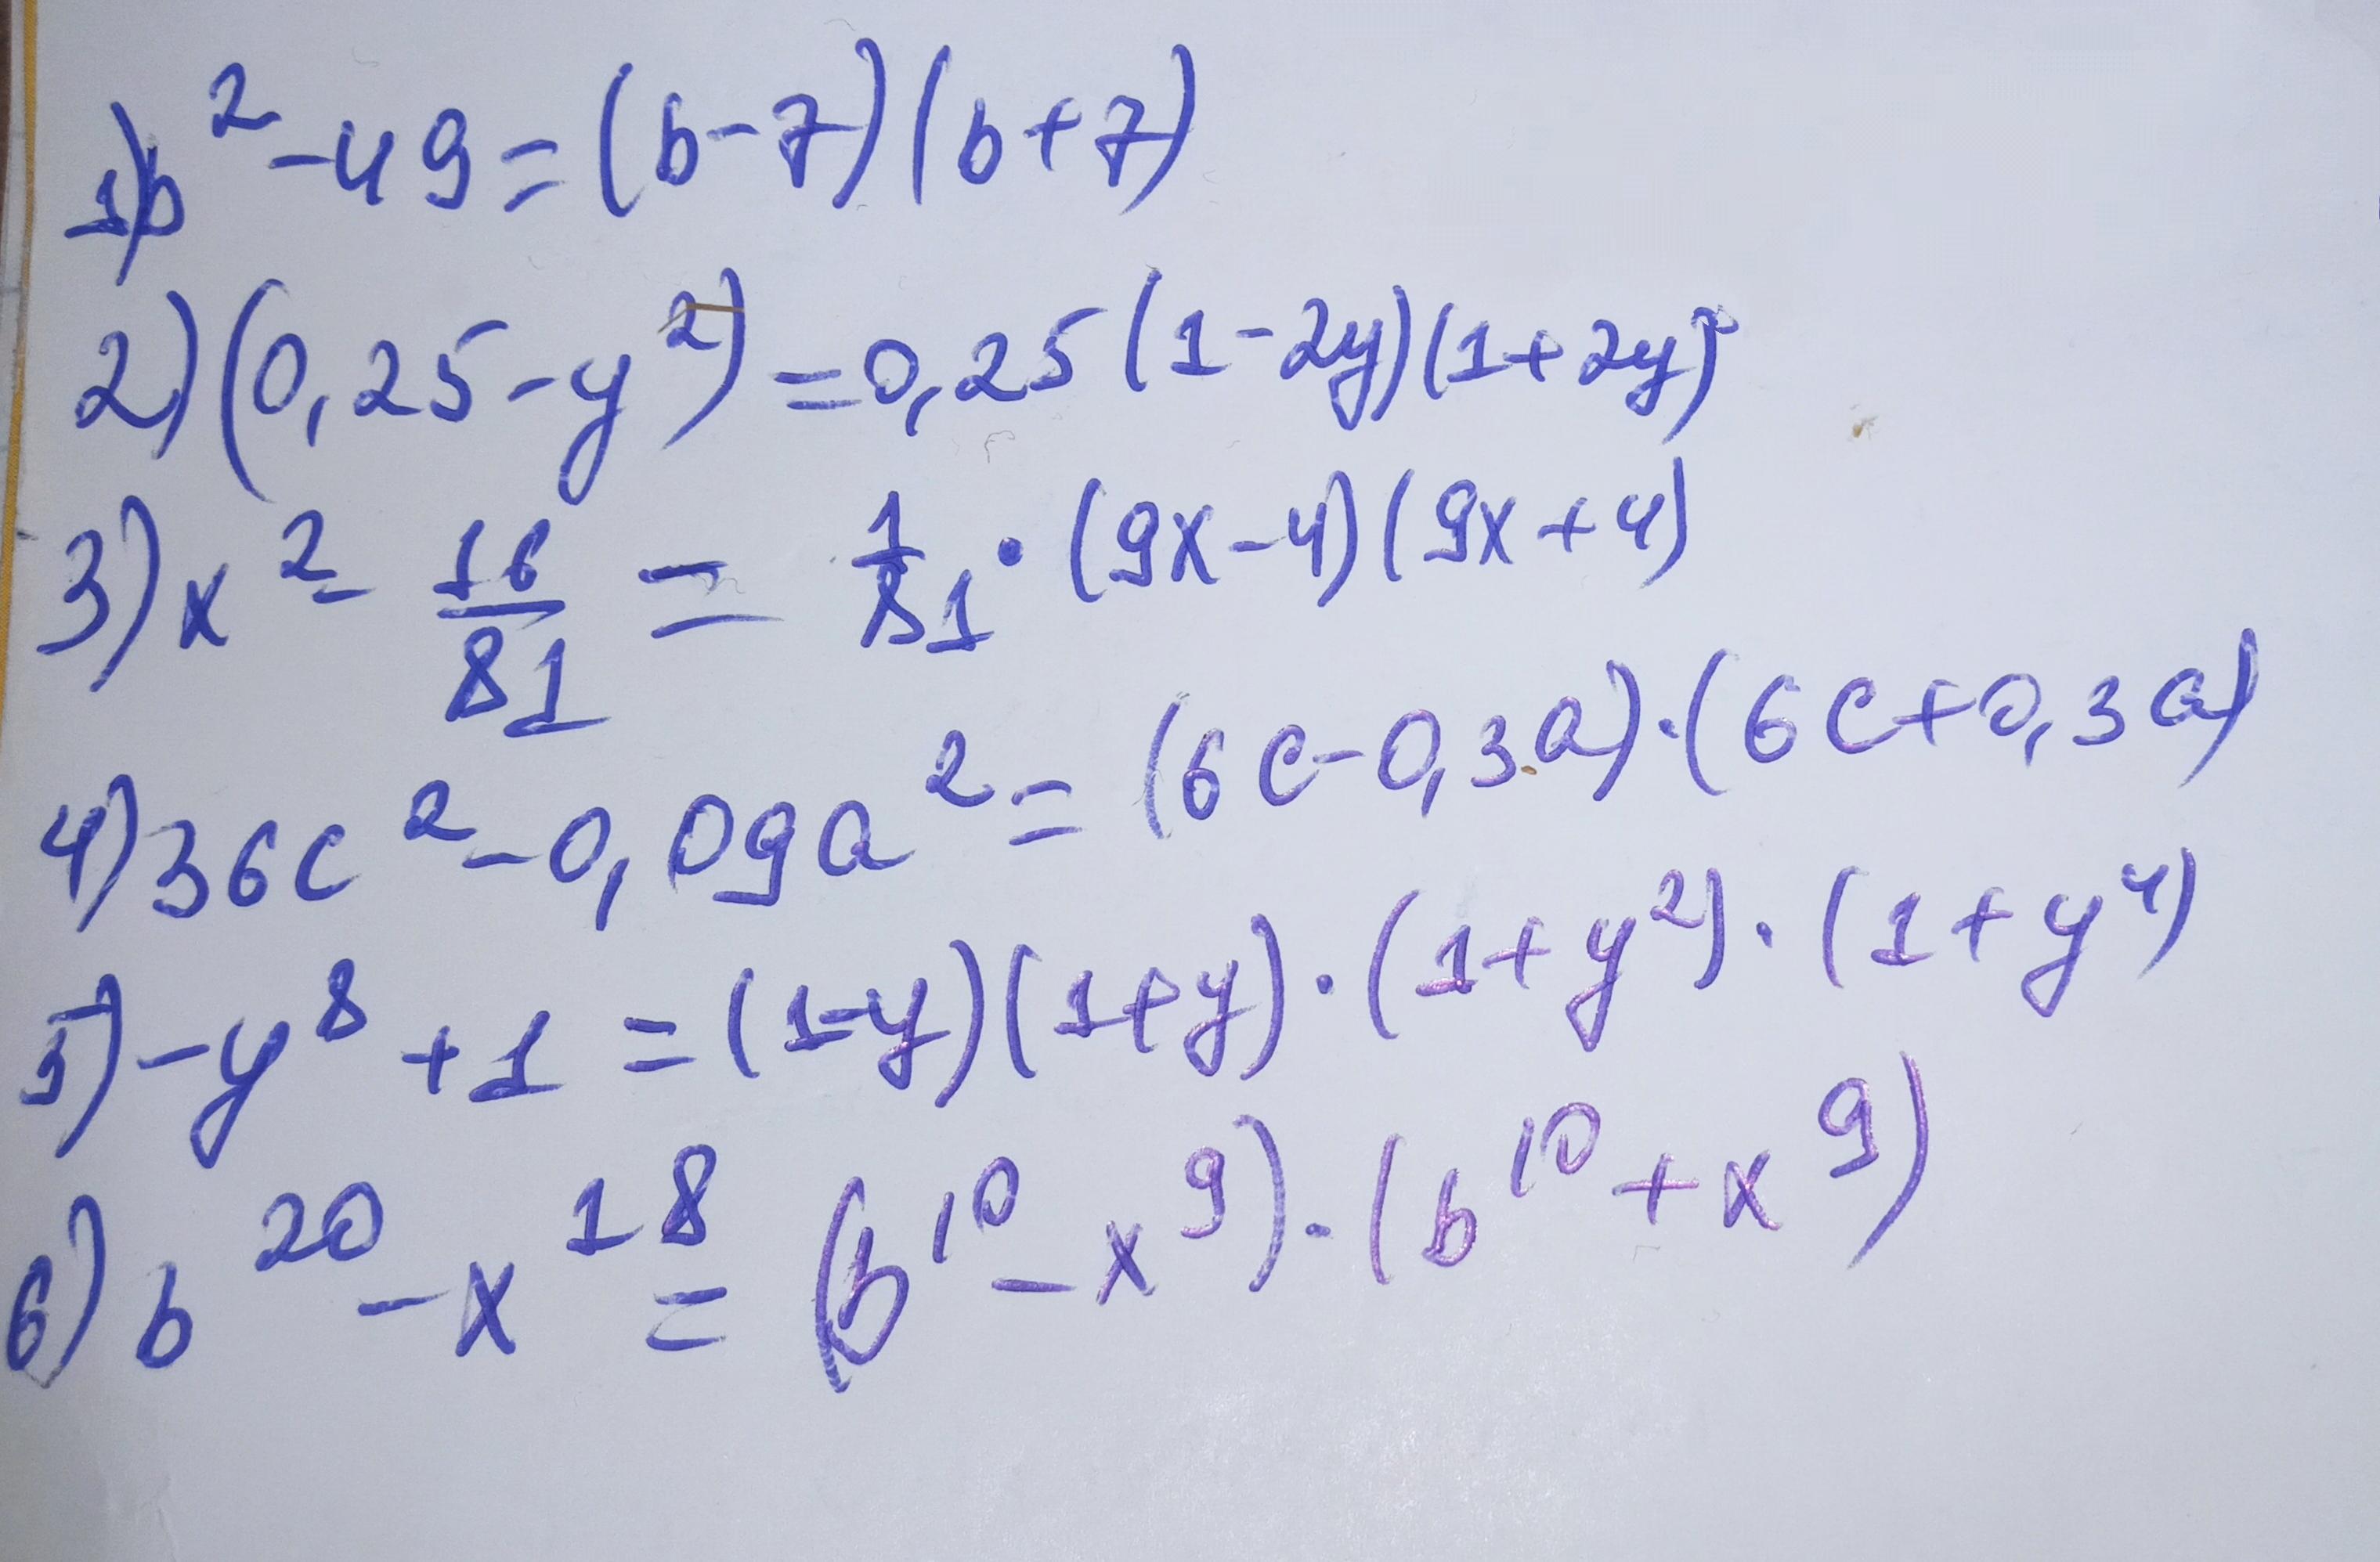 1) b² - 49 = (b-7)(b+7)
2) (0,25 - y²) = 0,25 (1-2y)(1+2y)
3) x² - 16/81 = 1/81 · (9x-4)(9x+4)
4) 36c² - 0,09a² = (6c-0,3a)·(6c+0,3a)
5) -y⁸ + 1 = (1-y)(1+y)·(1+y²)·(1+y⁴)
6) b²⁰ - x¹⁸ = (b¹⁰ - x⁹)·(b¹⁰ + x⁹)